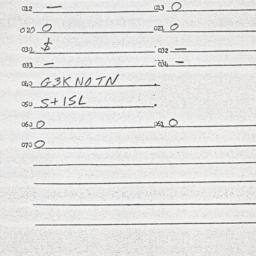 022 — 023 0
020 0 021 0
030 $ 032 —
033 — 034 —
040 G3KNOTN .
050 S+1SL .
060 0 061 0
070 0